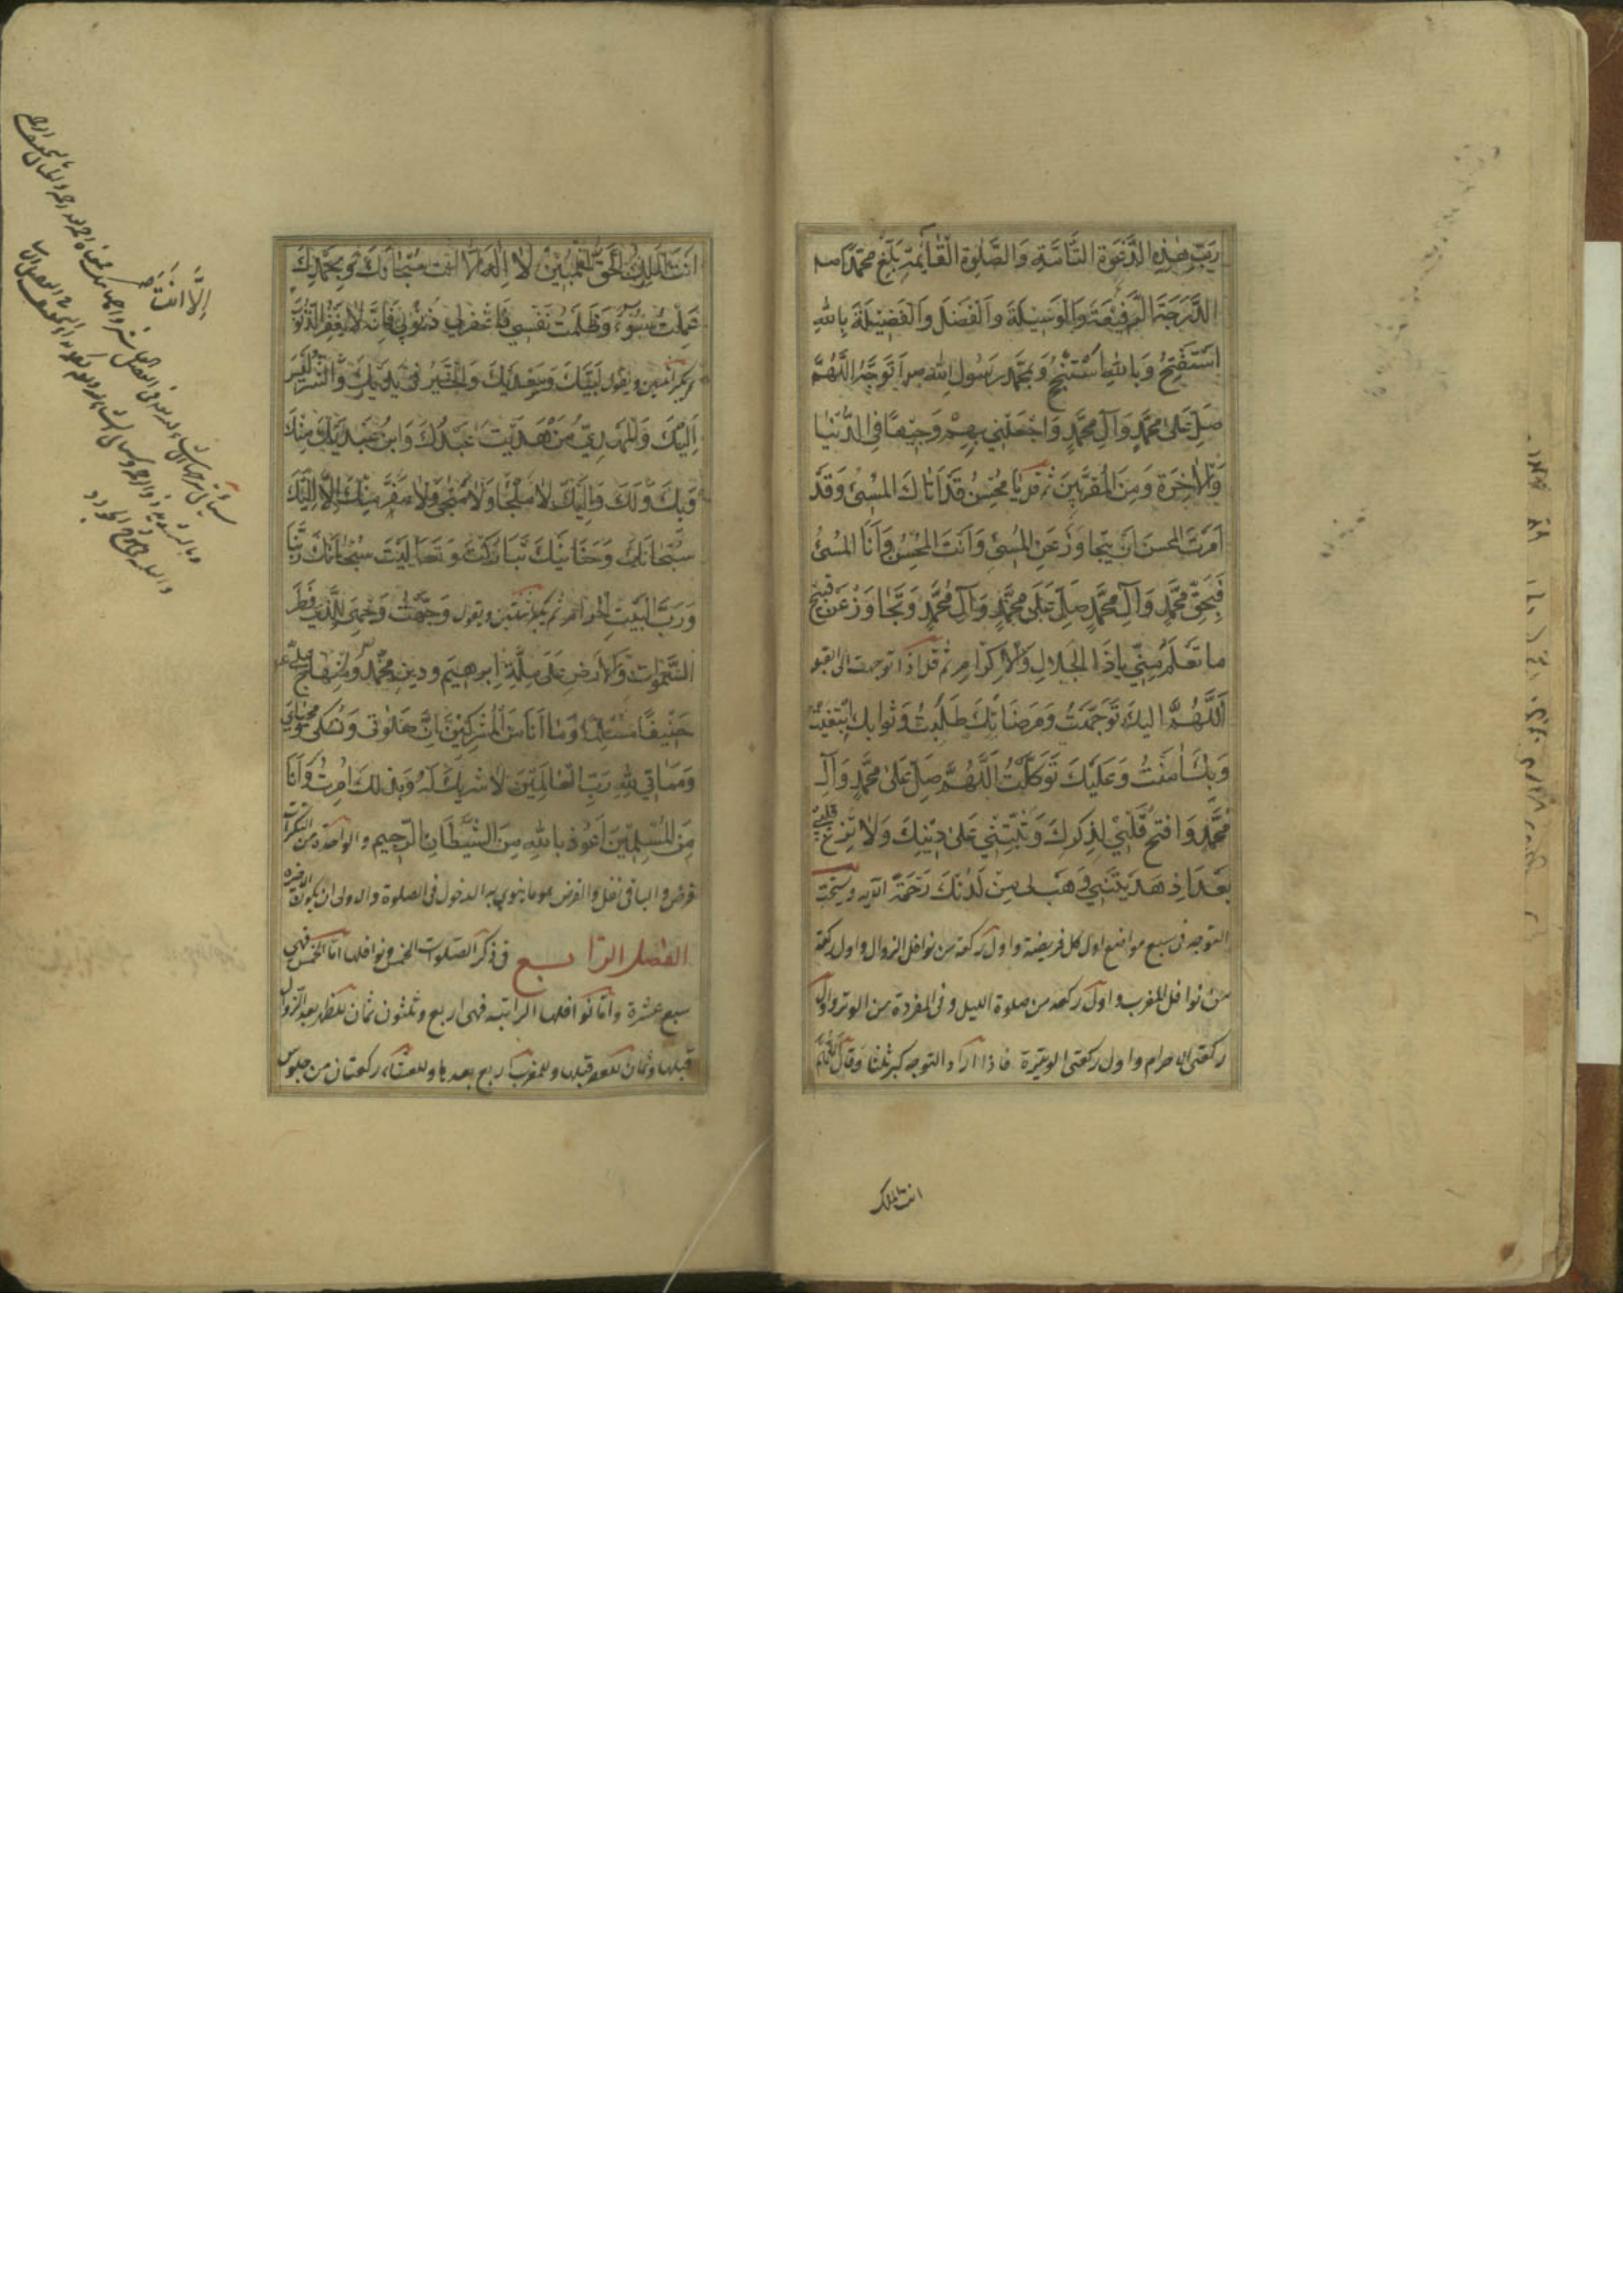 رَبَّ هٰذِهِ الدَّعْوَةِ التَّامَّةِ وَالصَّلٰوةِ الْقَائِمَةِ بَلِّغْ مُحَمَّدًا صم
الدَّرَجَةَ الرَّفِيعَةَ وَالْوَسِيلَةَ وَالْفَضْلَ وَالْفَضِيلَةَ بِاللهِ
اَسْتَفْتِحُ وَبِاللهِ اَسْتَنْجِحُ وَبِمُحَمَّدٍ رَسُولِ اللهِ ص اَتَوَجَّهُ اللّٰهُمَّ
صَلِّ عَلٰى مُحَمَّدٍ وَآلِ مُحَمَّدٍ وَاجْعَلْنِي بِهِمْ وَجِيهًا فِي الدُّنْيَا
وَالْاٰخِرَةِ وَمِنَ الْمُقَرَّبِينَ ثم قل يَا مُحْسِنُ قَدْ اَتَاكَ الْمُسِئُ وَقَدْ
اَمَرْتَ الْمُحْسِنَ اَنْ يَتَجَاوَزَ عَنِ الْمُسِئِ وَاَنْتَ الْمُحْسِنُ وَاَنَا الْمُسِئُ
فَبِحَقِّ مُحَمَّدٍ وَآلِ مُحَمَّدٍ صَلِّ عَلٰى مُحَمَّدٍ وَآلِ مُحَمَّدٍ وَتَجَاوَزْ عَنْ قَبِيحِ
مَا تَعْلَمُ مِنِّي يَا ذَا الْجَلَالِ وَالْاِكْرَامِ ثم قل اذا توجهت الى القبلة
اَللّٰهُمَّ اِلَيْكَ تَوَجَّهْتُ وَمَرْضَاتَكَ طَلَبْتُ وَثَوَابَكَ ابْتَغَيْتُ
وَبِكَ اٰمَنْتُ وَعَلَيْكَ تَوَكَّلْتُ اَللّٰهُمَّ صَلِّ عَلٰى مُحَمَّدٍ وَآلِ
مُحَمَّدٍ وَافْتَحْ قَلْبِي لِذِكْرِكَ وَثَبِّتْنِي عَلٰى دِينِكَ وَلَا تُزِغْ قَلْبِي
بَعْدَ اِذْ هَدَيْتَنِي وَهَبْ لِي مِنْ لَدُنْكَ رَحْمَةً الآيه ويستحب
التوجه فى سبع مواضع اول كل فريضة واول ركعة من نوافل الزوال واول ركعة
من نوافل المغرب واول ركعة من صلوة الليل وفى المفردة من الوتر واول
ركعتى الاحرام واول ركعتى الوتيرة فاذا اراد التوجه كبر ثلثا وقال اللهم
انت الملك
اَنْتَ الْمَلِكُ الْحَقُّ الْمُبِينُ لَا اِلٰهَ اِلَّا اَنْتَ سُبْحَانَكَ وَبِحَمْدِكَ
عَمِلْتُ سُوءً وَظَلَمْتُ نَفْسِي فَاغْفِرْ لِي ذُنُوبِي فَاِنَّهُ لَا يَغْفِرُ الذُّنُوبَ
ثم يكبر اثنتين ويقول لَبَّيْكَ وَسَعْدَيْكَ وَالْخَيْرُ فِي يَدَيْكَ وَالشَّرُّ لَيْسَ
اِلَيْكَ وَالْمَهْدِيُّ مَنْ هَدَيْتَ عَبْدُكَ وَابْنُ عَبْدَيْكَ مِنْكَ
وَبِكَ وَلَكَ وَاِلَيْكَ لَا مَلْجَاَ وَلَا مَنْجٰى وَلَا مَفَرَّ مِنْكَ اِلَّا اِلَيْكَ
سُبْحَانَكَ وَحَنَانَيْكَ تَبَارَكْتَ وَتَعَالَيْتَ سُبْحَانَكَ رَبَّنَا
وَرَبَّ الْبَيْتِ الْحَرَامِ ثم يكبر ثنتين ويقول وَجَّهْتُ وَجْهِيَ لِلَّذِي فَطَرَ
السَّمٰوَاتِ وَالْاَرْضَ عَلٰى مِلَّةِ اِبْرٰهِيمَ وَدِينِ مُحَمَّدٍ وَمِنْهَاجِ عَلِيٍّ
حَنِيفًا مُسْلِمًا وَمَا اَنَا مِنَ الْمُشْرِكِينَ اِنَّ صَلٰوتِي وَنُسُكِي وَمَحْيَايَ
وَمَمَاتِي لِلّٰهِ رَبِّ الْعَالَمِينَ لَا شَرِيكَ لَهُ وَبِذٰلِكَ اُمِرْتُ وَاَنَا
مِنَ الْمُسْلِمِينَ اَعُوذُ بِاللهِ مِنَ الشَّيْطَانِ الرَّجِيمِ والواحدة من التكبيرات
فرض والباقى نفل والفرض هو ما ينوى به الدخول فى الصلوة والاولى ان يكون الاخيرة
الفصل الرابع فى ذكر الصلوات الخمس ونوافلها اما الخمس فهى
سبع عشرة واما نوافلها الراتبة فهى اربع وثلثون ثمان للظهر بعد الزوال
قبلها وثمان للعصر قبلها وللمغرب اربع بعدها وللعشاء ركعتان من جلوس
اِلَّا اَنْتَ